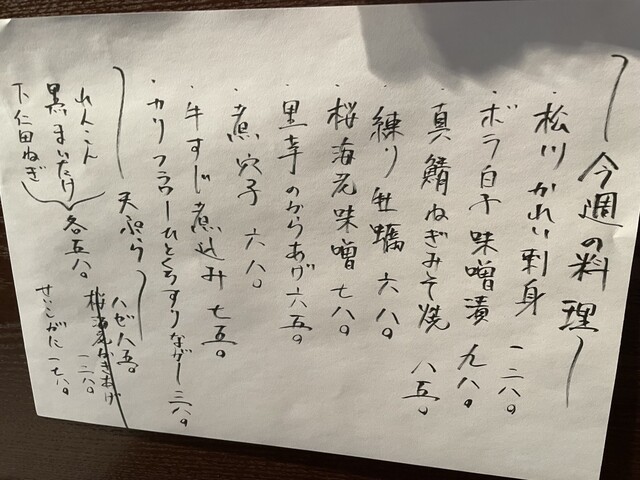 今週の料理
・松川かれい刺身 一二八〇
・ボラ白子味噌漬 九八〇
・真鯖ねぎみそ焼 八五〇
・練り牡蠣 六八〇
・桜海老味噌 七八〇
・里芋のからあげ 六五〇
・煮穴子 六八〇
・牛すじ煮込み 七五〇
・カリフラワーひとくちすりながし 三八〇
天ぷら
ハゼ 八五〇
桜海老かきあげ 一二八〇
れんこん
黒まいたけ
下仁田ねぎ
各五八〇
せいこがに 一七八〇